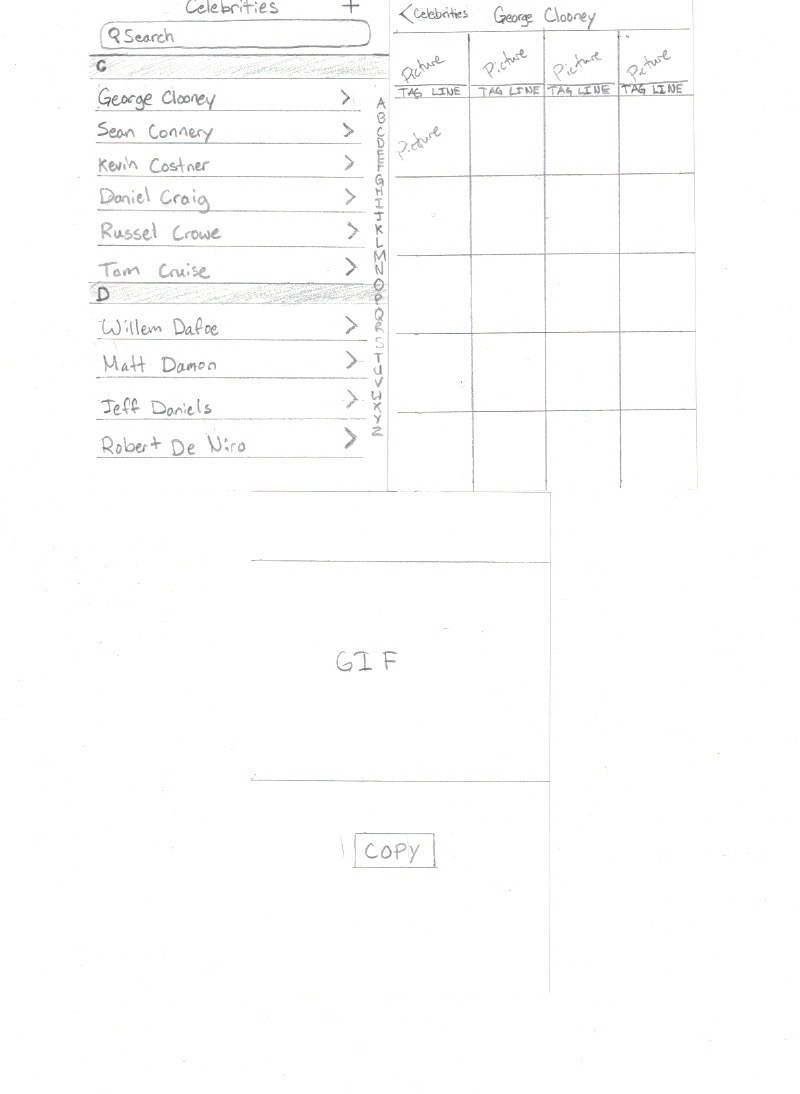 Celebrities +
Search
C
George Clooney >
Sean Connery >
Kevin Costner >
Daniel Craig >
Russel Crowe >
Tom Cruise >
D
Willem Dafoe >
Matt Damon >
Jeff Daniels >
Robert De Niro >
A
B
C
D
E
F
G
H
I
J
K
L
M
N
O
P
Q
R
S
T
U
V
W
X
Y
Z
< Celebrities George Clooney
Picture Picture Picture Picture
TAG LINE TAG LINE TAG LINE TAG LINE
Picture
GIF
COPY